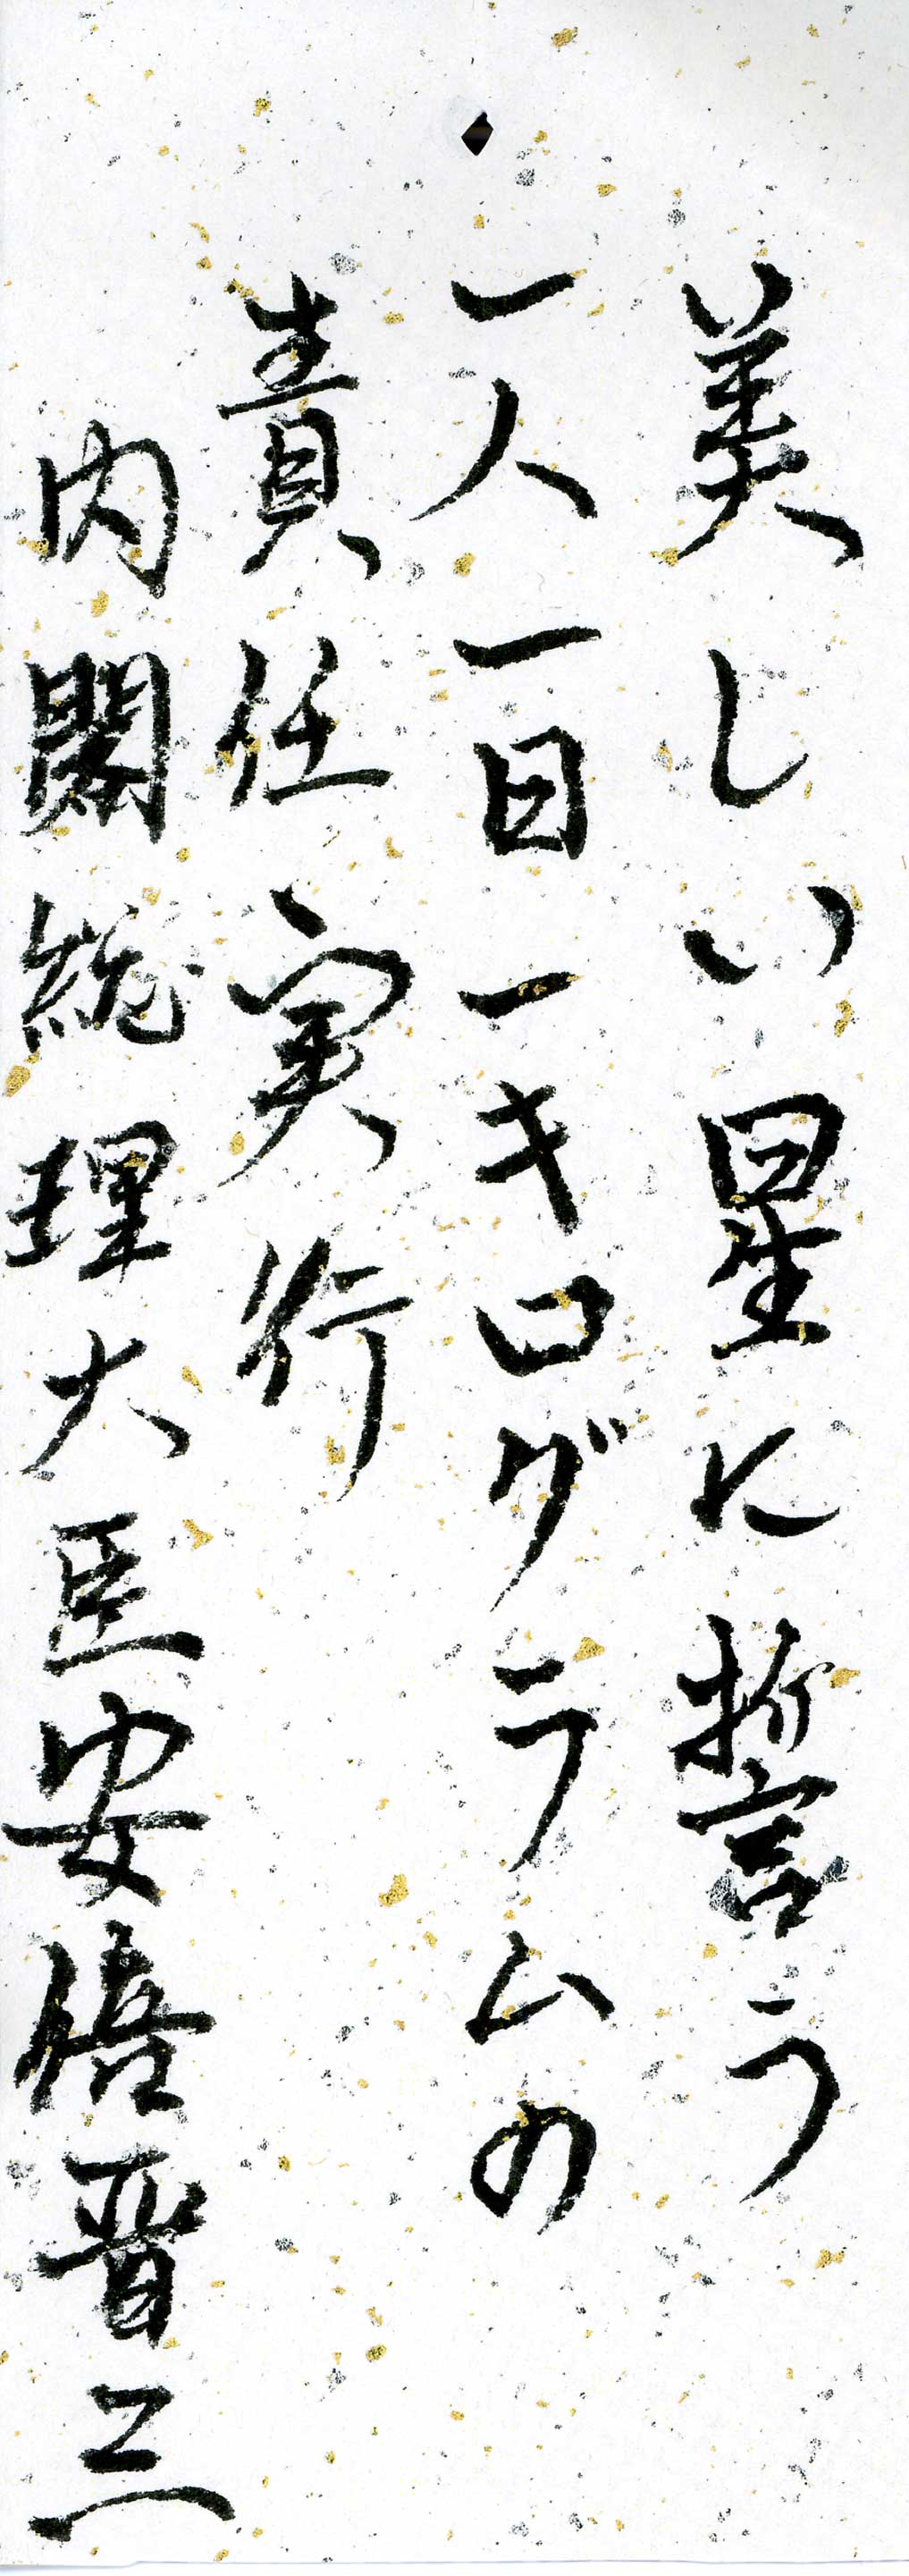 美しい星に誓う
一人一日一キログラムの
責任実行
内閣総理大臣安倍晋三